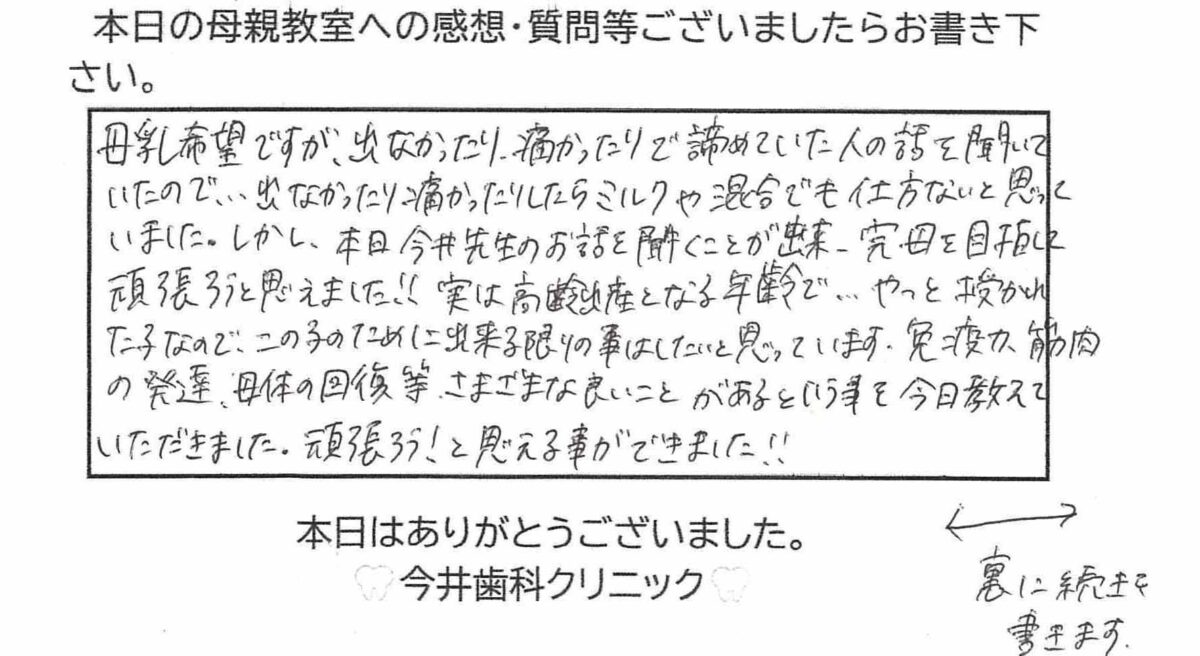 本日の母親教室への感想・質問等ございましたらお書き下
さい。
母乳希望ですが、出なかったり、痛かったりで諦めていた人の話を聞いて
いたので、、、出なかったり、痛かったりしたらミルクや混合でも仕方ないと思って
いました。しかし、本日今井先生のお話を聞くことが出来、完母を目指して
頑張ろうと思えました!! 実は高齢出産となる年齢で… やっと授かれ
た子なので、この子のために出来る限りの事はしたいと思っています。免疫力、筋肉
の発達、母体の回復等、さまざまな良いことがあるという事を今日教えて
いただきました。頑張ろう!と思える事ができました!!
本日はありがとうございました。
今井歯科クリニック
裏に続きを
書きます。